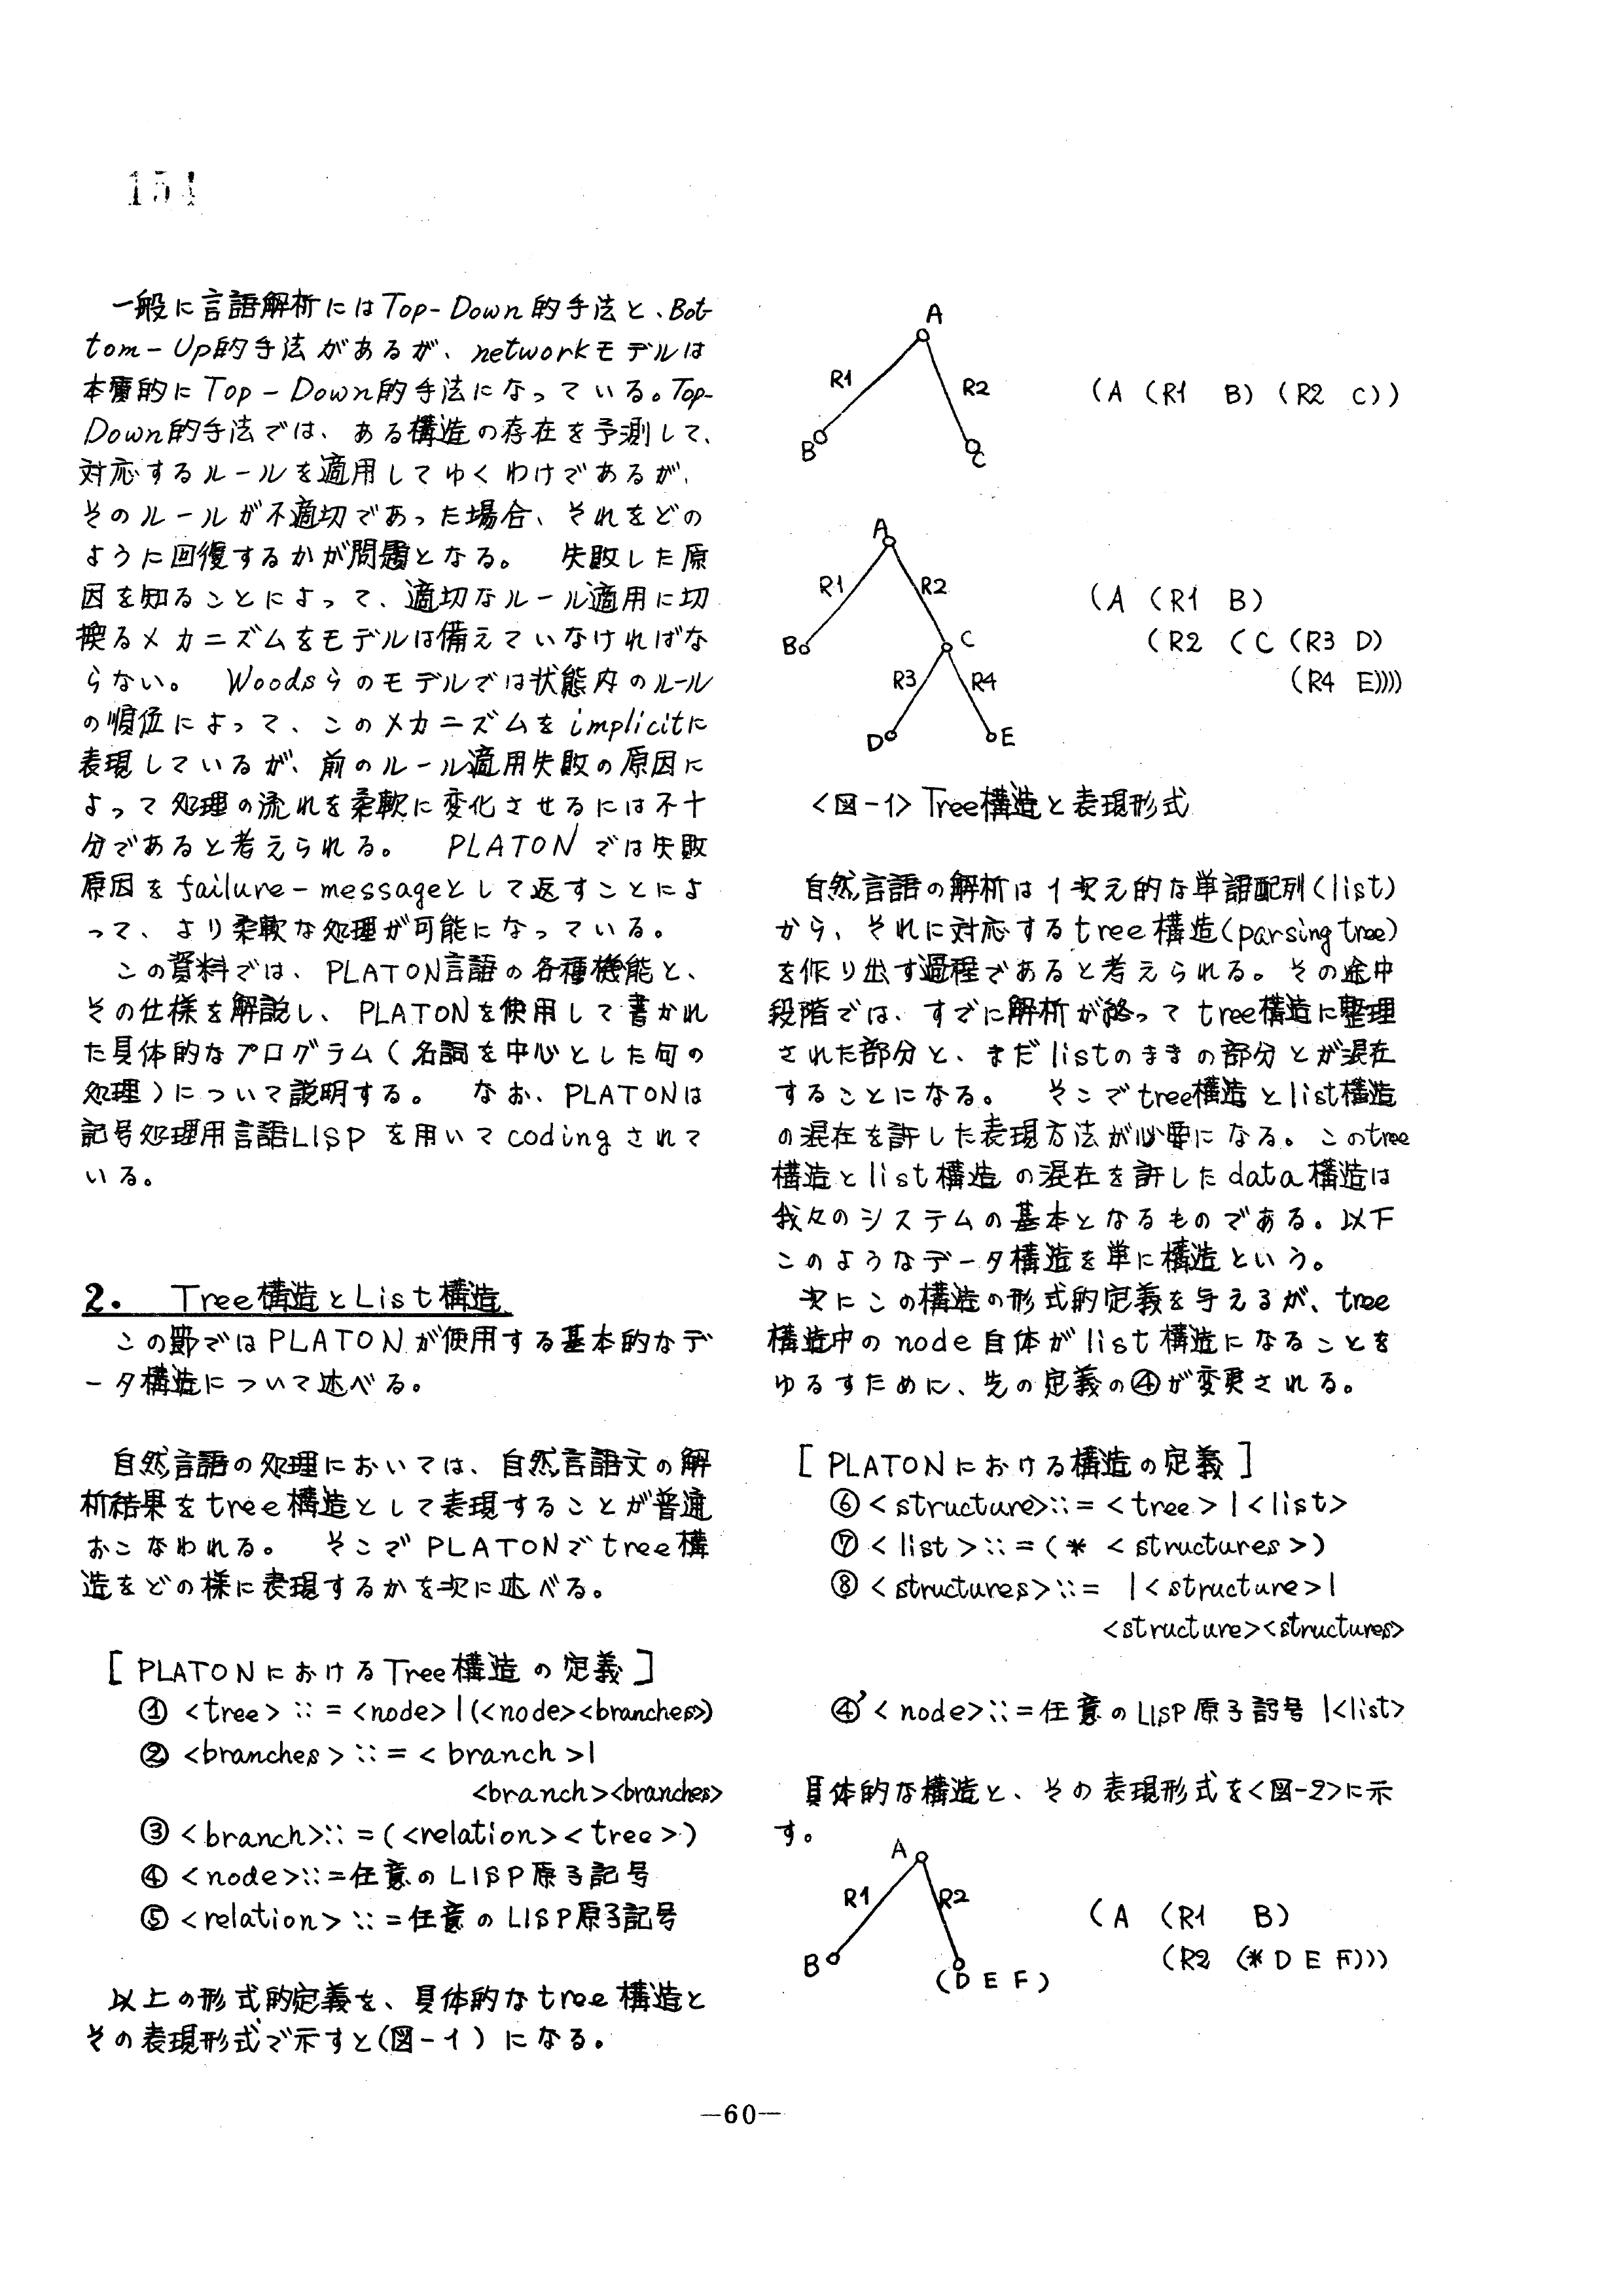 一般に言語解析にはTop-Down的手法と、Bot-
tom-Up的手法があるが、networkモデルは
本質的にTop-Down的手法になっている。Top-
Down的手法では、ある構造の存在を予測して、
対応するルールを適用してゆくわけであるが、
そのルールが不適切であった場合、それをどの
ように回復するかが問題となる。 失敗した原
因を知ることによって、適切なルール適用に切
換るメカニズムをモデルは備えていなければな
らない。 Woodsらのモデルでは状態内のルール
の順位によって、このメカニズムをimplicitに
表現しているが、前のルール適用失敗の原因に
よって処理の流れを柔軟に変化させるには不十
分であると考えられる。 PLATONでは失敗
原因をfailure-messageとして返すことによ
って、より柔軟な処理が可能になっている。
この資料では、PLATON言語の各種機能と、
その仕様を解説し、PLATONを使用して書かれ
た具体的なプログラム(名詞を中心とした句の
処理)について説明する。 なお、PLATONは
記号処理用言語LISPを用いてcodingされて
いる。
2. Tree構造とList構造
この節ではPLATONが使用する基本的なデ
ータ構造について述べる。
自然言語の処理においては、自然言語文の解
析結果をtree構造として表現することが普通
おこなわれる。 そこでPLATONでtree構
造をどの様に表現するかを次に述べる。
[PLATONにおけるTree構造の定義]
① <tree> ::= <node> | (<node><branches>)
② <branches> ::= <branch> |
<branch><branches>
③ <branch> ::= (<relation><tree>)
④ <node> ::= 任意のLISP原子記号
⑤ <relation> ::= 任意のLISP原子記号
以上の形式的定義を、具体的なtree構造と
その表現形式で示すと(図-1)になる。
A
R1 R2 (A (R1 B) (R2 C))
B C
A
R1 R2 (A (R1 B)
B C (R2 (C (R3 D)
R3 R4 (R4 E))))
D E
<図-1> Tree構造と表現形式
自然言語の解析は1次元的な単語配列(list)
から、それに対応するtree構造(parsing tree)
を作り出す過程であると考えられる。その途中
段階では、すでに解析が終ってtree構造に整理
された部分と、まだlistのままの部分とが混在
することになる。 そこでtree構造とlist構造
の混在を許した表現方法が必要になる。このtree
構造とlist構造の混在を許したdata構造は
我々のシステムの基本となるものである。以下
このようなデータ構造を単に構造という。
次にこの構造の形式的定義を与えるが、tree
構造中のnode自体がlist構造になることを
ゆるすために、先の定義の④が変更される。
[PLATONにおける構造の定義]
⑥ <structure> ::= <tree> | <list>
⑦ <list> ::= (* <structures>)
⑧ <structures> ::= | <structure> |
<structure><structures>
④' <node> ::= 任意のLISP原子記号 | <list>
具体的な構造と、その表現形式を<図-2>に示
す。
A
R1 R2 (A (R1 B)
B (D E F) (R2 (* D E F)))
—60—